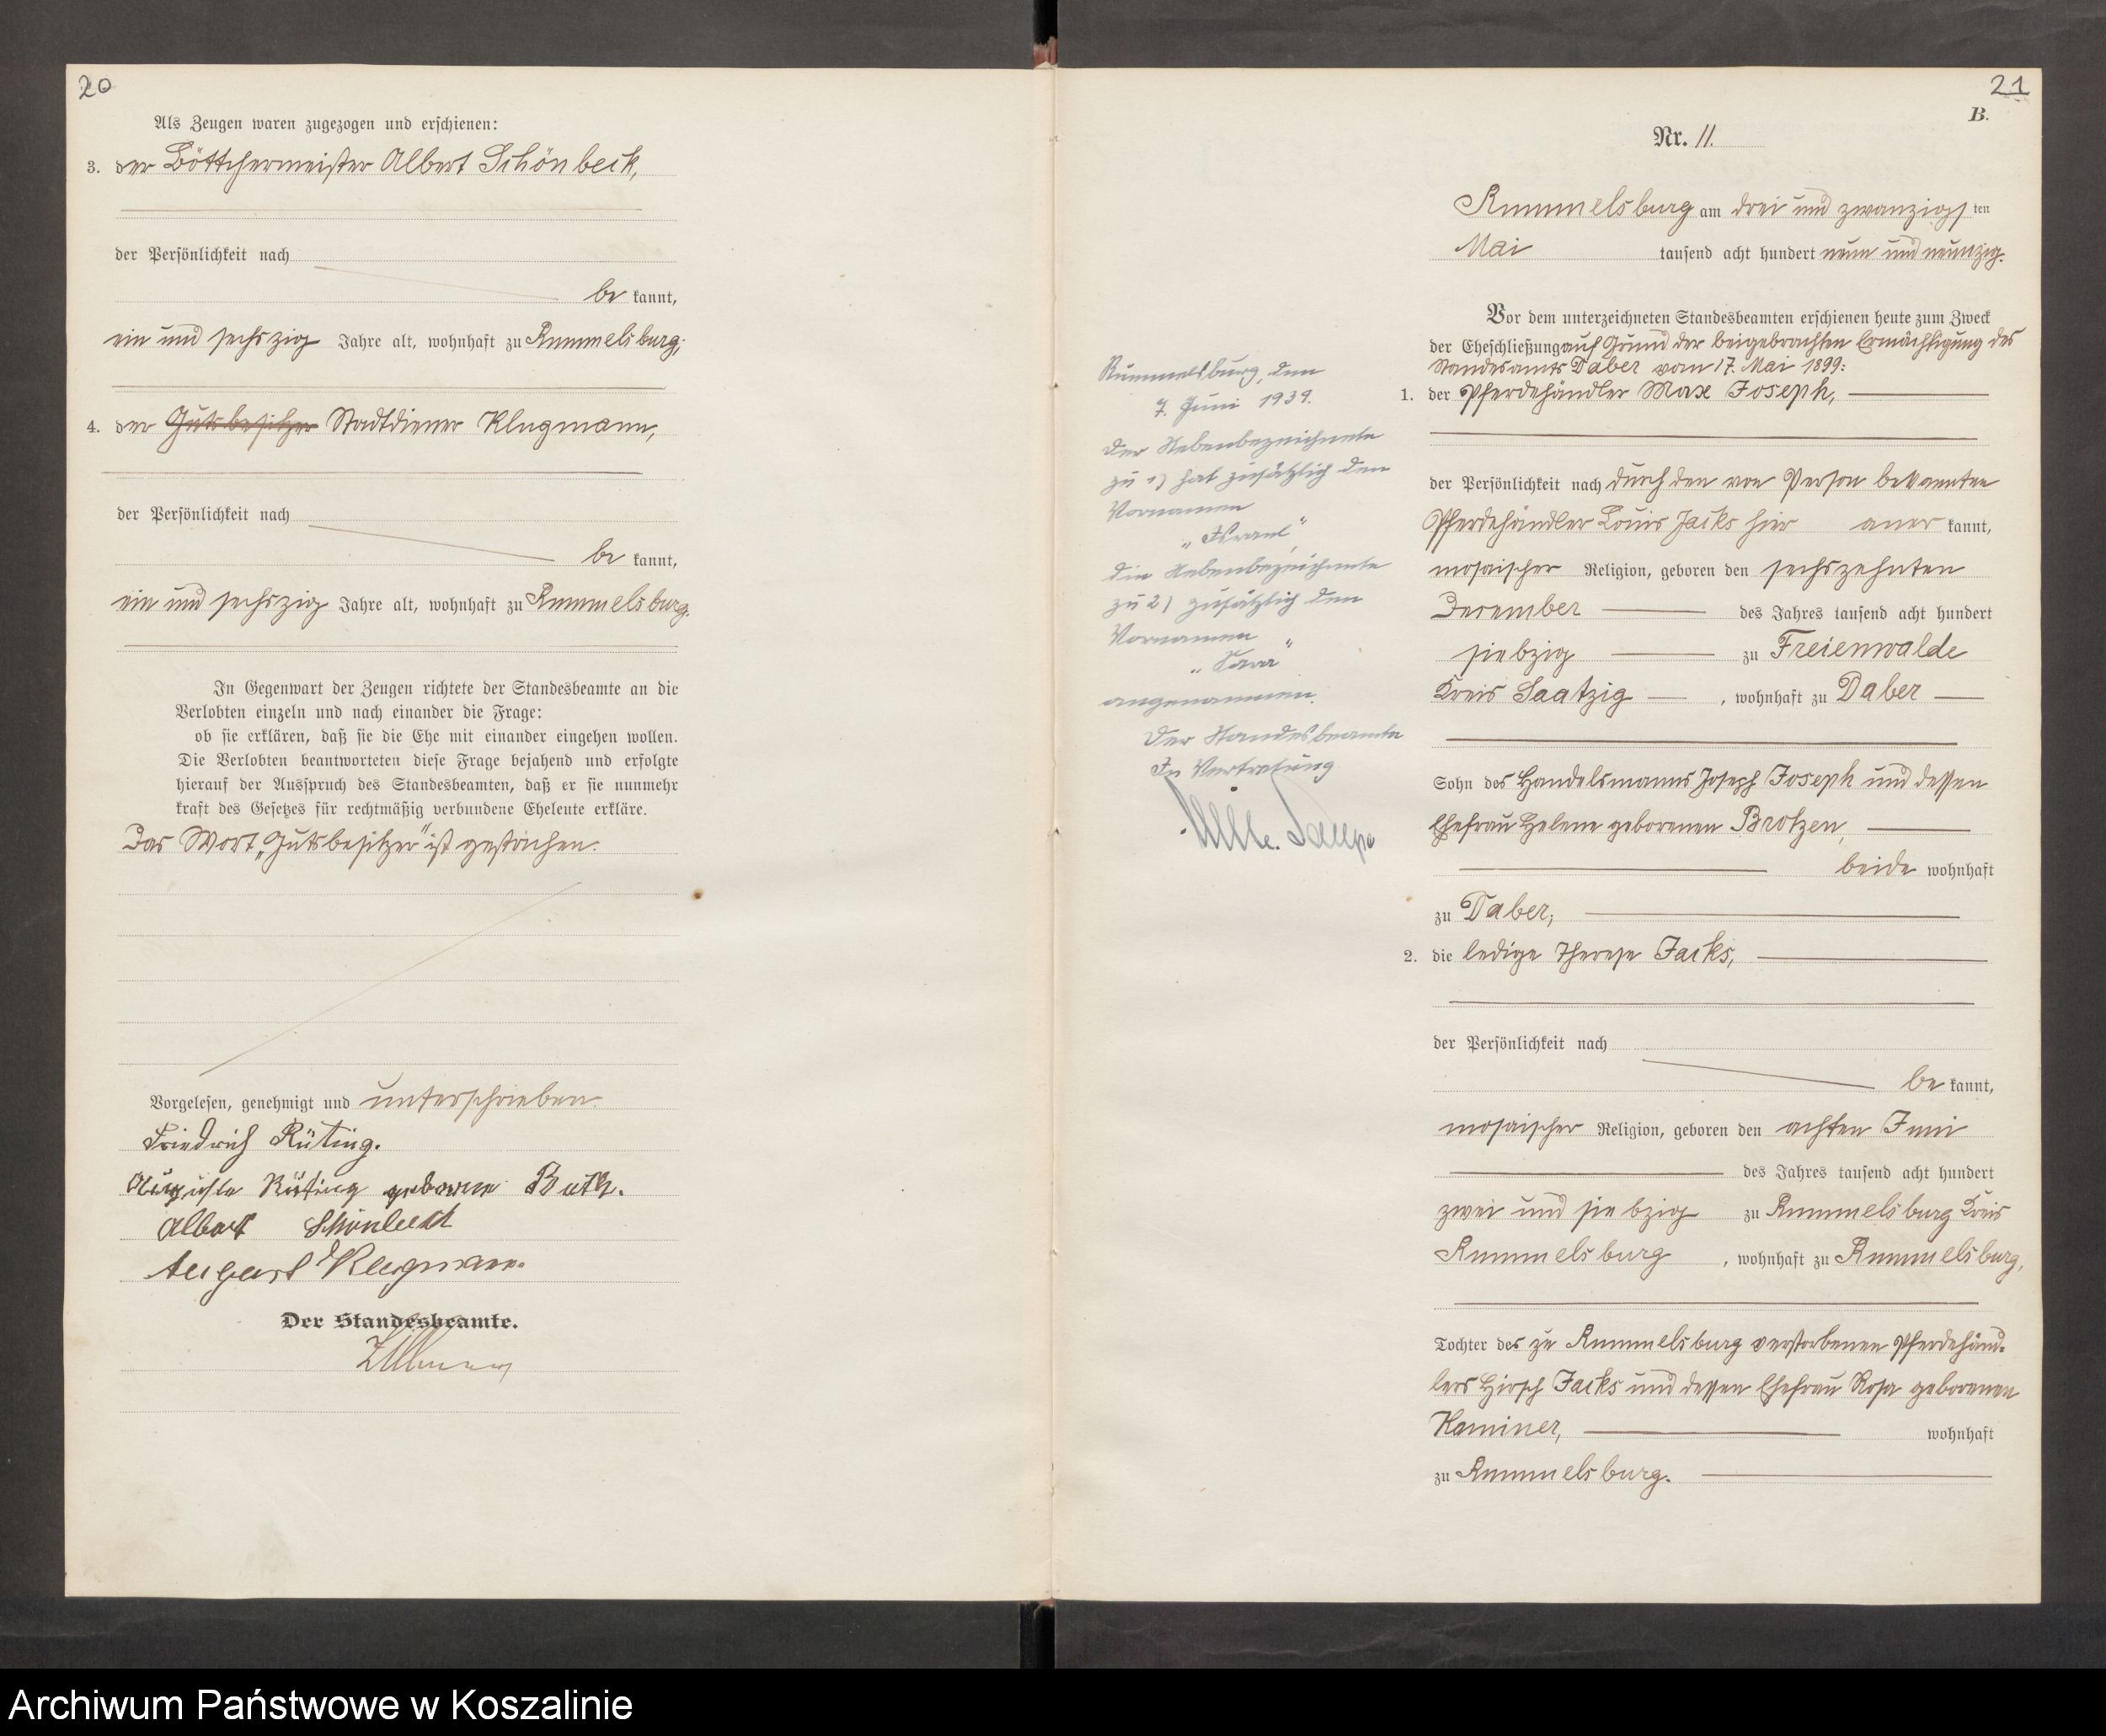 20
Als Zeugen waren zugezogen und erschienen:
3. der Böttchermeister Albert Schönbeck,
der Persönlichkeit nach
be kannt,
ein und sechszig Jahre alt, wohnhaft zu Rummelsburg;
4. der Gutsbesitzer Stadtdiener Klugmann,
der Persönlichkeit nach
be kannt,
ein und sechszig Jahre alt, wohnhaft zu Rummelsburg.
In Gegenwart der Zeugen richtete der Standesbeamte an die
Verlobten einzeln und nach einander die Frage:
ob sie erklären, daß sie die Ehe mit einander eingehen wollen.
Die Verlobten beantworteten diese Frage bejahend und erfolgte
hierauf der Ausspruch des Standesbeamten, daß er sie nunmehr
kraft des Gesetzes für rechtmäßig verbundene Eheleute erkläre.
Das Wort „Gutsbesitzer" ist gestrichen.
Vorgelesen, genehmigt und unterschrieben.
Friedrich Rüting.
Auguste Rüting geborne Buth.
Albert Schönbeck
August Klugmann.
Der Standesbeamte.
21
B.
Nr. 11.
Rummelsburg am drei und zwanzigs ten
Mai tausend acht hundert neun und neunzig.
Vor dem unterzeichneten Standesbeamten erschienen heute zum Zweck
der Eheschließung auf Grund der beigebrachten Ermächtigung des
Standesamts Daber vom 17. Mai 1899:
1. der Pferdehändler Max Joseph,
der Persönlichkeit nach durch den von Person bekannten
Pferdehändler Louis Jacks hier aner kannt,
mosaischer Religion, geboren den sechszehnten
December des Jahres tausend acht hundert
siebzig zu Freienwalde
Kreis Saatzig, wohnhaft zu Daber
Sohn des Handelsmanns Joseph Joseph und dessen
Ehefrau Helene geborenen Brotzen,
beide wohnhaft
zu Daber;
2. die ledige Therese Jacks,
der Persönlichkeit nach
be kannt,
mosaischer Religion, geboren den achten Juni
des Jahres tausend acht hundert
zwei und siebzig zu Rummelsburg Kreis
Rummelsburg, wohnhaft zu Rummelsburg,
Tochter des zu Rummelsburg verstorbenen Pferdehänd-
lers Hirsch Jacks und dessen Ehefrau Rosa geborenen
Kaminer, wohnhaft
zu Rummelsburg.
Rummelsburg, den
7. Juni 1939.
Der Nebenbezeichnete
zu 1) hat zusätzlich den
Vornamen
„Israel",
die Nebenbezeichnete
zu 2) zusätzlich den
Vornamen
„Sara"
angenommen.
Der Standesbeamte
In Vertretung
Archiwum Państwowe w Koszalinie